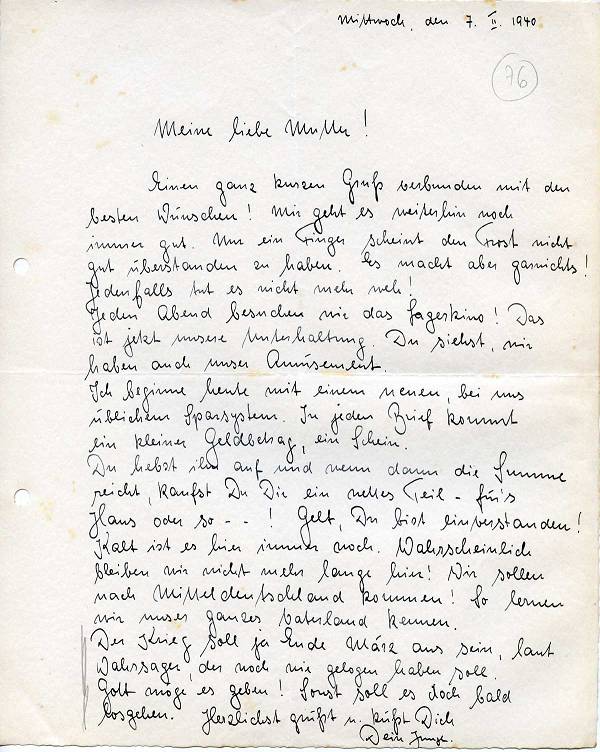 Mittwoch, den 7. II. 1940.
76
Meine liebe Mutter!
Einen ganz kurzen Gruß verbunden mit den
besten Wünschen! Mir geht es weiterhin noch
immer gut. Nur ein Finger scheint den Frost nicht
gut überstanden zu haben. Es macht aber garnichts!
Jedenfalls tut es nicht mehr weh!
Jeden Abend besuchen wir das Lagerkino! Das
ist jetzt unsere Unterhaltung. Du siehst, wir
haben auch unser Amüsement.
Ich beginne heute mit einem neuen, bei uns
üblichem Sparsystem. In jeden Brief kommt
ein kleiner Geldbetrag, ein Schein.
Du hebst ihn auf und wenn dann die Summe
reicht, kaufst Du Dir ein nettes Teil - für's
Haus oder so - - ! Gelt, Du bist einverstanden!
Kalt ist es hier immer noch. Wahrscheinlich
bleiben wir nicht mehr lange hier! Wir sollen
nach Mitteldeutschland kommen! So lernen
wir unser ganzes Vaterland kennen.
Der Krieg soll ja Ende März aus sein, laut
Wahrsager, der noch nie gelogen haben soll.
Gott möge es geben! Sonst soll es doch bald
losgehen. Herzlichst grüßt u. küßt Dich
Dein Junge.